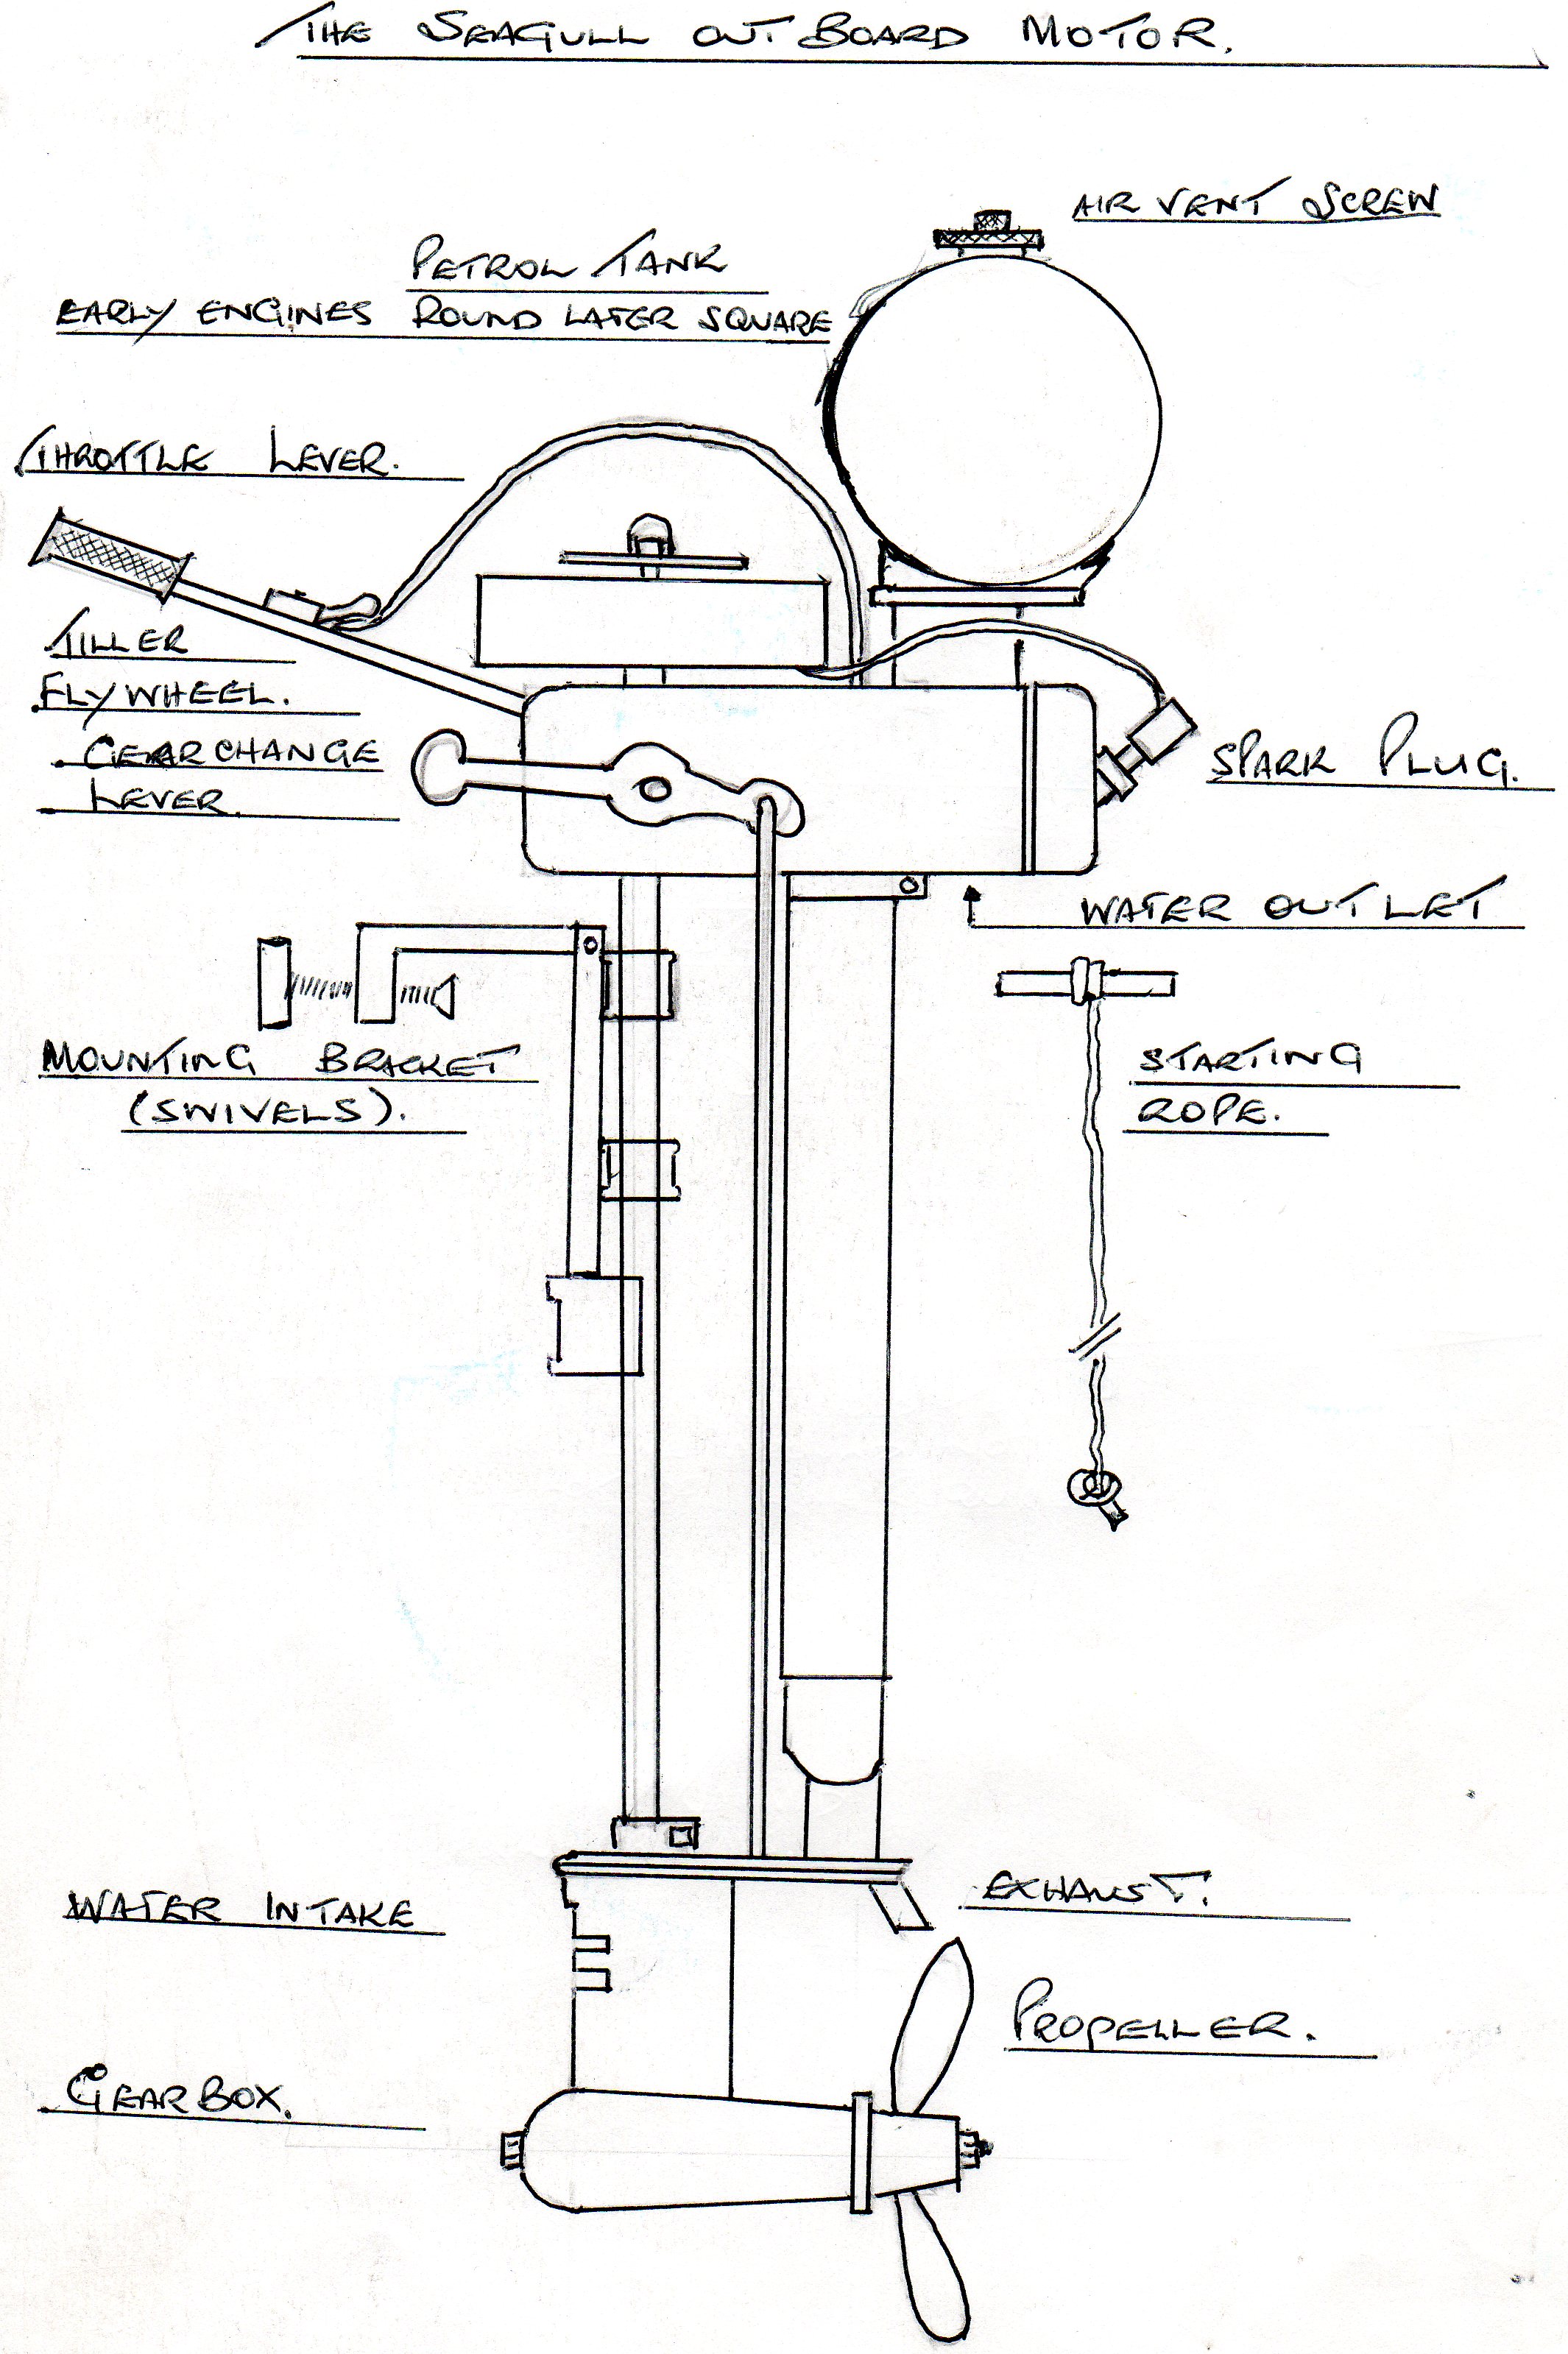 THE SEAGULL OUTBOARD MOTOR.
AIR VENT SCREW
PETROL TANK
EARLY ENGINES ROUND LATER SQUARE
THROTTLE LEVER.
TILLER
FLYWHEEL.
GEARCHANGE
LEVER.
SPARK PLUG.
WATER OUTLET
MOUNTING BRACKET
(SWIVELS).
STARTING
ROPE.
WATER INTAKE
EXHAUST.
PROPELLER.
GEARBOX.